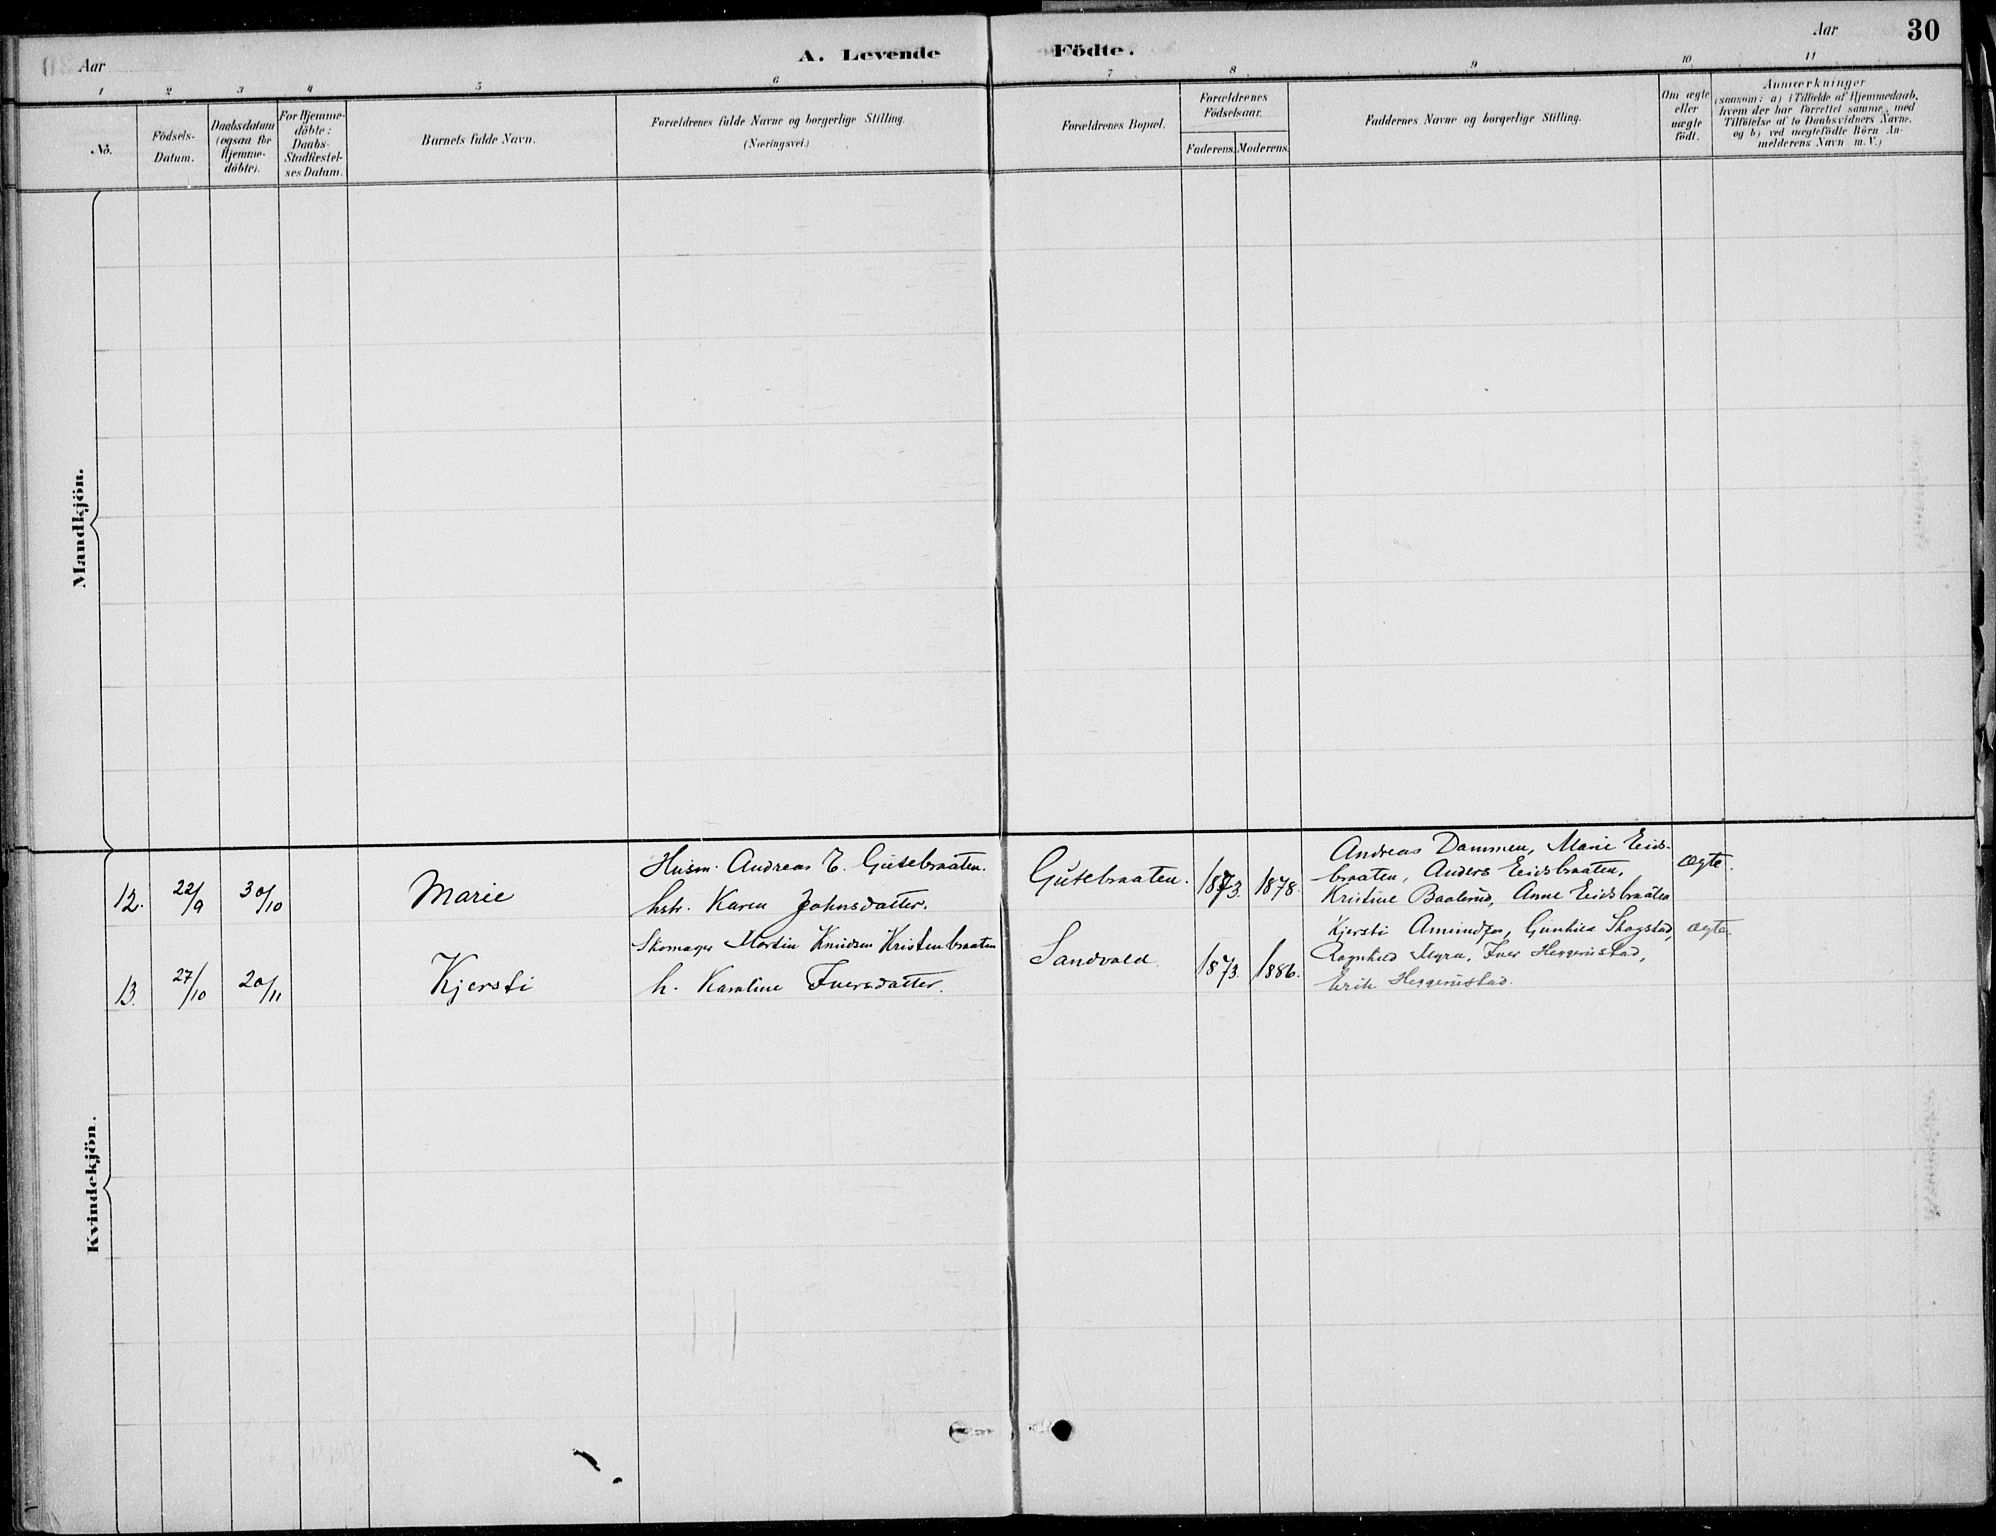 Aar
A. Levende Födte.
Aar
30
1 2 3 4 5 6 7 8 9 10 11
No.
Födsels-
Datum.
Daabsdatum
(ogsaa for
Hjemme-
døbte).
For Hjemme-
døbte:
Daabs-
Stadfæstel-
ses Datum.
Barnets fulde Navn.
Forældrenes fulde Navne og borgerlige Stilling.
(Næringsvei.)
Forældrenes Bopæl.
Forældrenes
Födselsaar.
Faderens. Moderens.
Faddernes Navne og borgerlige Stilling.
Om ægte
eller
uægte
födt.
Anmærkninger
(saasom: a) i Tilfælde af Hjemmedaab,
hvem der har forrettet samme, med
Tilföielse af to Daabsvidners Navne.
og b) ved uægtefödte Börn An-
melderens Navn m. V.)
Mandkjön.
Kvindekjön.
12. 22/9 30/10 Marie
Husm. Andreas E. Gutebraaten.
hstr. Karen Johnsdatter.
Gutebraaten. 1873. 1878.
Andreas Dammen, Marie Eids-
braaten, Anders Eidsbraaten,
Kristine Baalerud, Anne Eidsbraaten
ægte.
13. 27/10 20/11 Kjersti
Skomager Martin Knudsen Kristenbraaten
h. Karoline Iversdatter.
Sandvold. 1873. 1886.
Kjersti Gunhild Skogstad,
Ragnhild Myra, Iver
Erik
ægte.